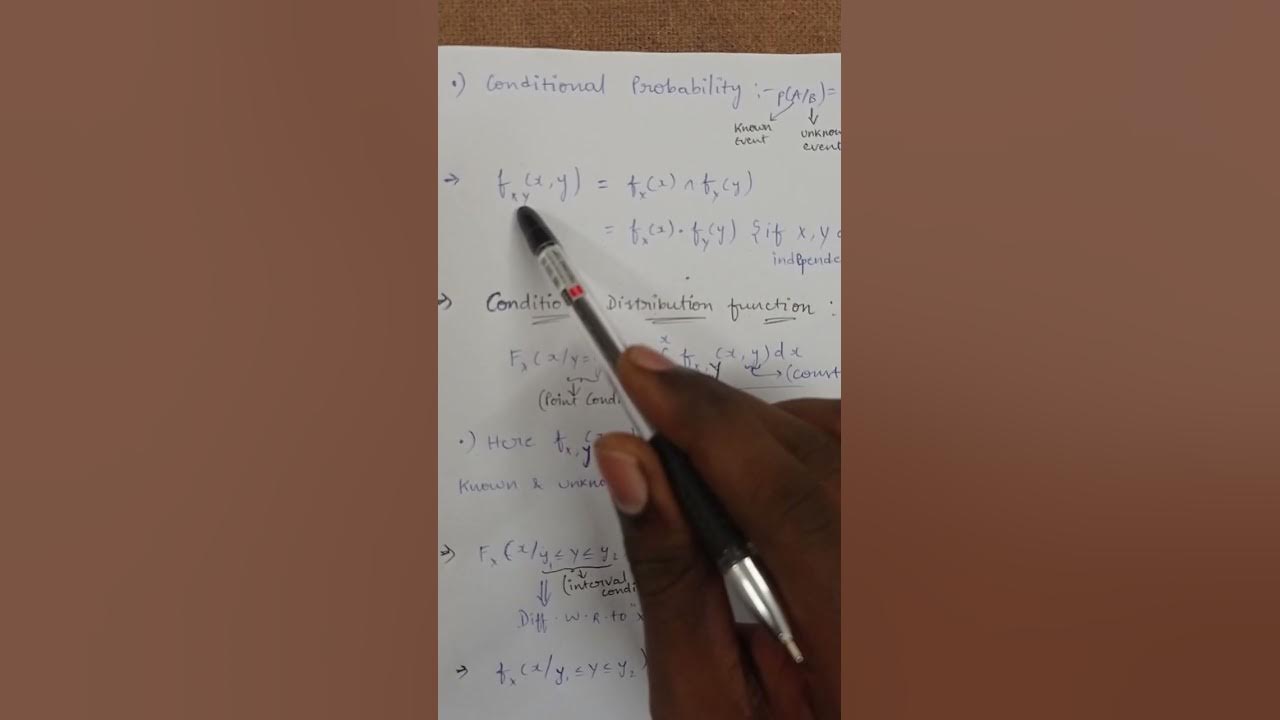 •) Conditional Probability :- P(A/B) =
Known event
unknow event
→ f_xy(x,y) = f_x(x) ∩ f_y(y)
= f_x(x) • f_y(y) {if x, y
independe
⇒ Conditio Distribution function :
F_x(x/y= x f_x,y(x,y)dx
→(const
(Point Condi
•) Here f_x,y(
Known & unkno
⇒ F_x(x/y₁ ≤ y ≤ y₂
(interval condi
Diff. w.R.to "x
→ f_x(x/y₁ ≤ y ≤ y₂)